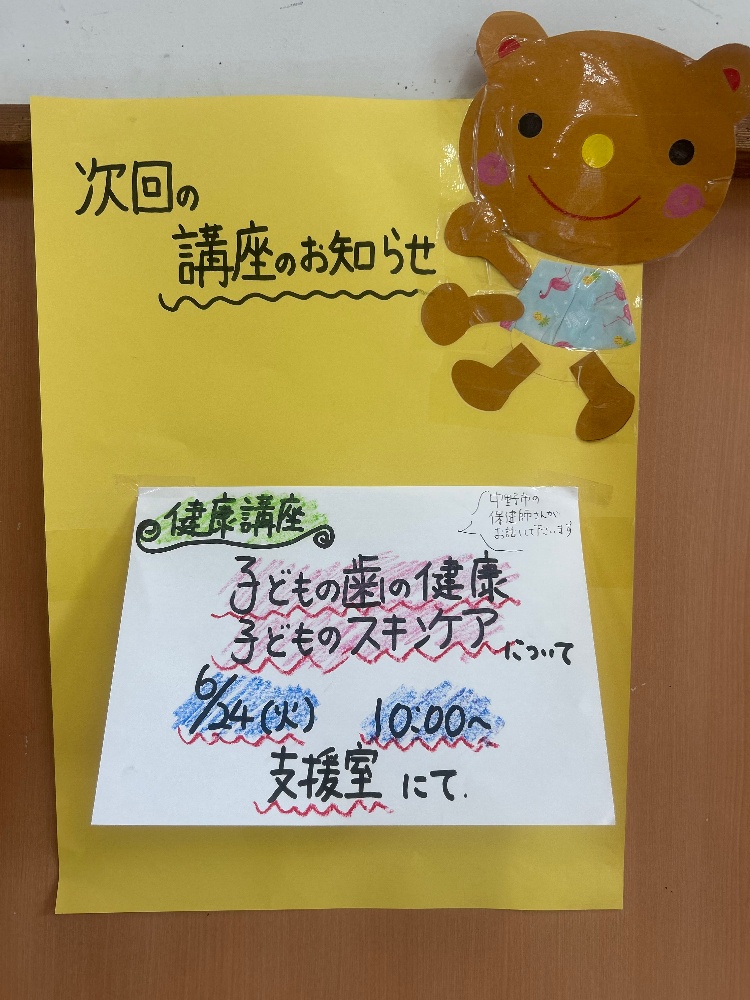 次回の
講座のお知らせ
健康講座
中野市の
保健師さんが
お話して下さいます
子どもの歯の健康
子どものスキンケア について
6/24(火) 10:00~
支援室 にて.